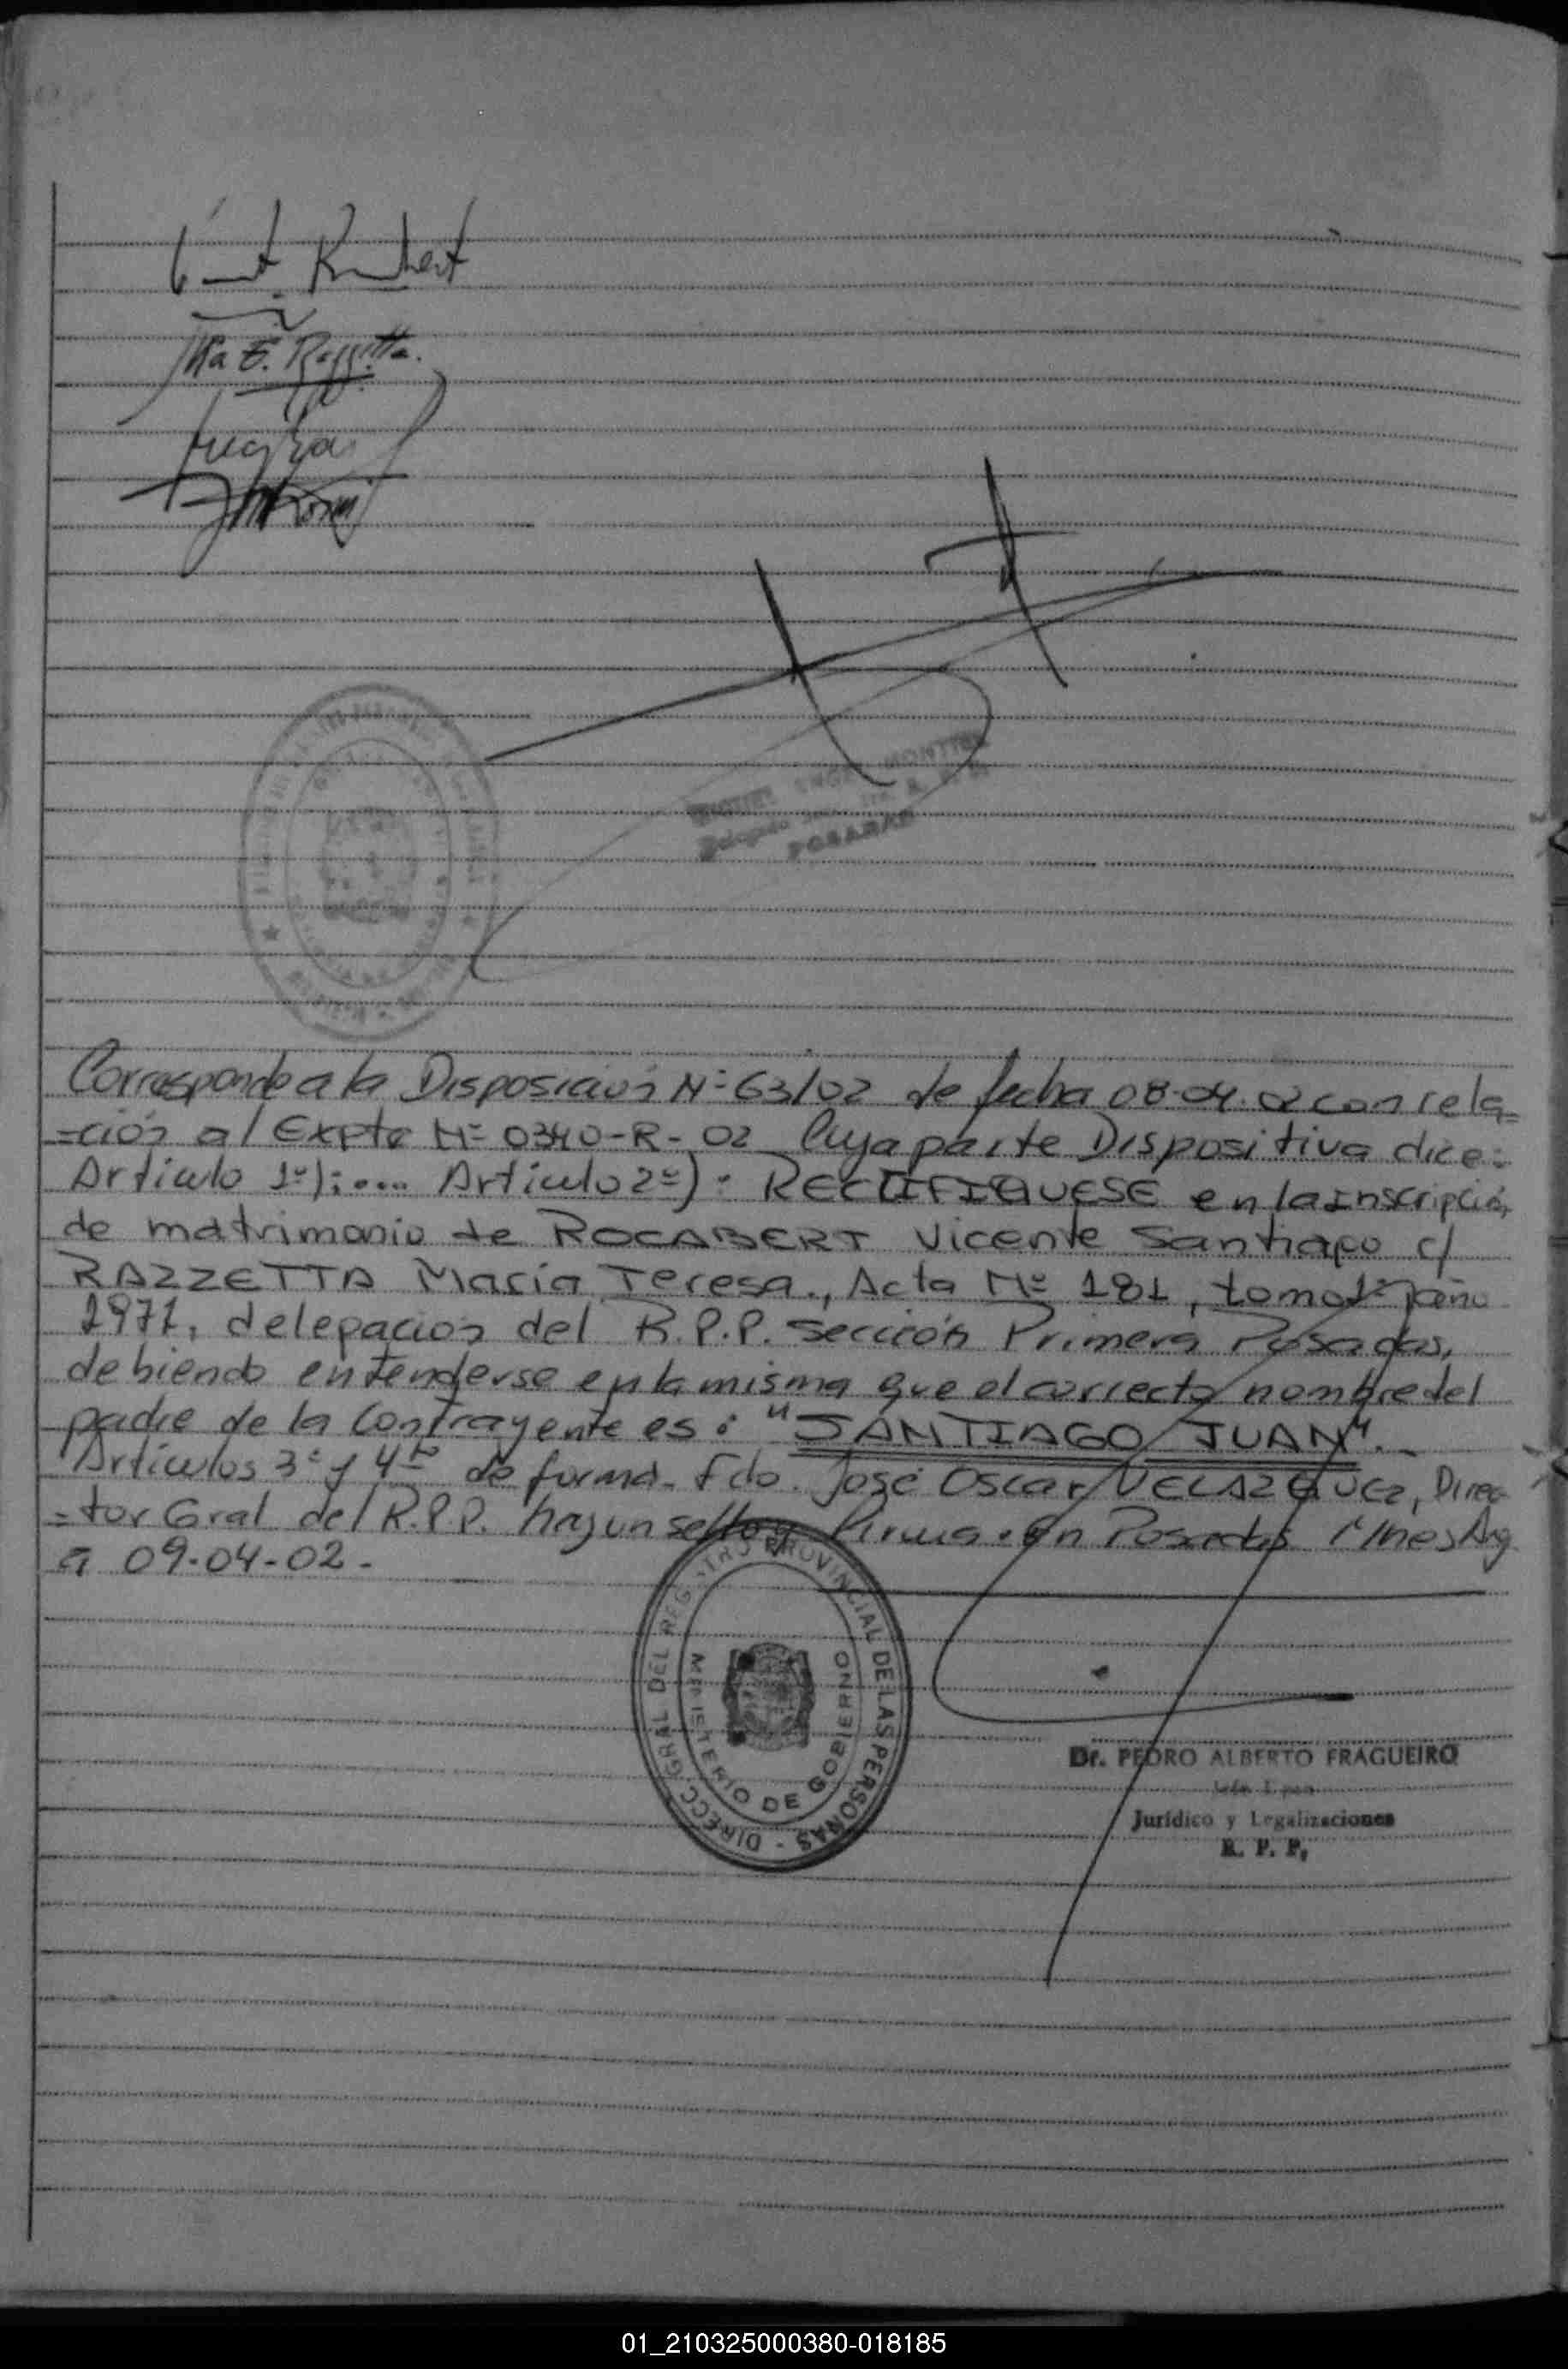 Ma E. Razzetta.
MIGUEL ANGEL MONTIEL
Delegado
POSADAS
Corresponde a la Disposición Nº 63/02 de fecha 08-04-02 con rela=
=ción al Expte Nº 0340-R-02 Cuya parte Dispositiva dice:
Artículo 1º):.... Artículo 2º): RECTIFIQUESE en la Inscripción
de matrimonio de ROCABERT Vicente Santiago c/
RAZZETTA María Teresa., Acta Nº 181, tomo 1º año
1971, delegación del R.P.P. sección Primera Posadas,
debiendo entenderse en la misma que el correcto nombre del
padre de la Contrayente es: "SANTIAGO JUAN".
Artículos 3º y 4º de forma. Fdo. José Oscar VELAZQUEZ, Direc
=tor Gral del R.P.P. hay un sello y firma. En Posadas Mnes Arg
a 09-04-02-
DIRECC. GRAL. DEL REGISTRO PROVINCIAL DE LAS PERSONAS -
MINISTERIO DE GOBIERNO
Dr. PEDRO ALBERTO FRAGUEIRO
Jurídico y Legalizaciones
R. P. P.
01_210325000380-018185